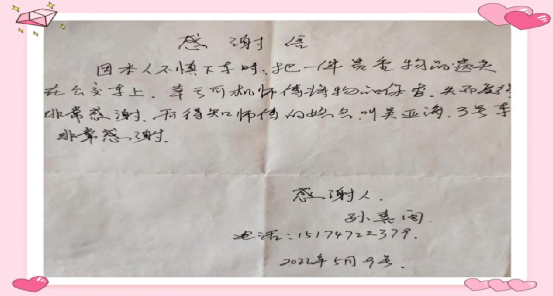 感谢信
因本人不慎下车时,把一件贵重物品遗失
在公交车上,幸亏司机师傅将物品保管,失而复得
非常感谢.后得知师傅的姓名叫吴亚海,3号车
非常感谢.
感谢人.
孙
电话:15174722379.
2022年5月9号.